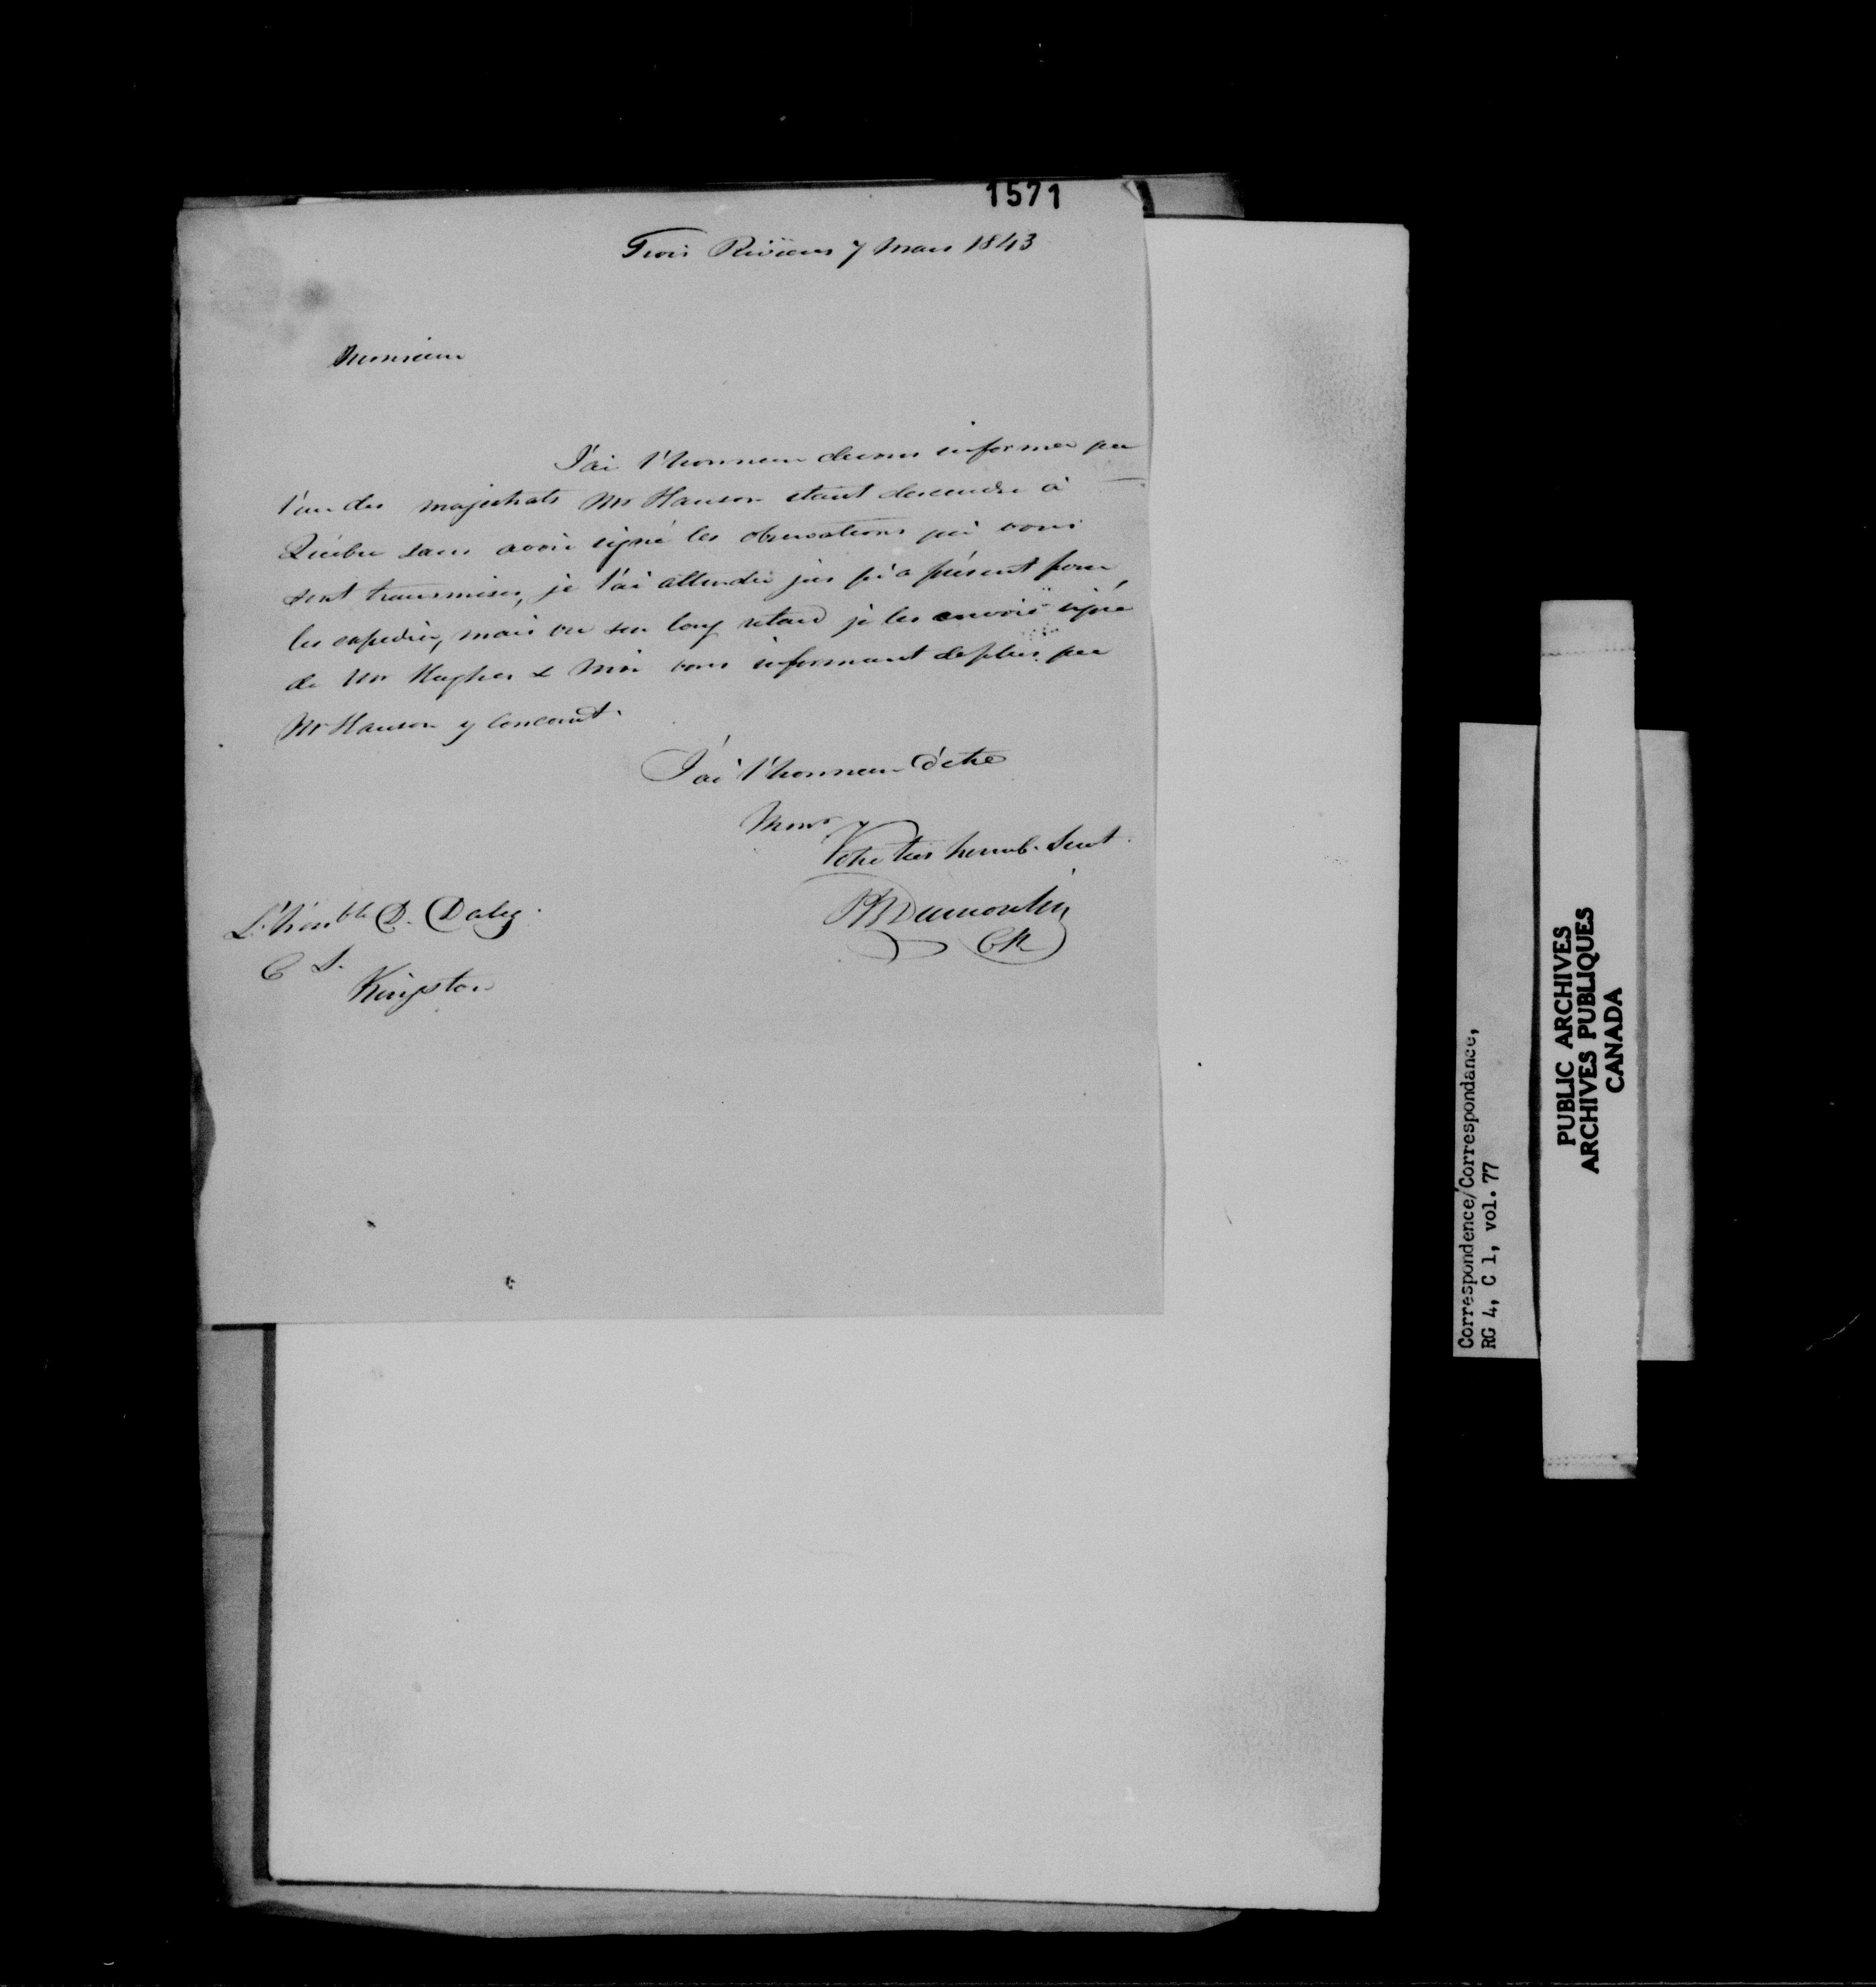 1571
Trois Rivieres 7 Mars 1843
Monsieur
J'ai l'honneur de vous informer que
l'un des majistrats Mr Hanson etant descendu à
Québec sans avoir signé les observations qui vous
sont transmises, je l'ai attendu jus qu'a présent pour
les expedier, mais vu son long retard je les envoie signé
de Mr Hughes & Moi vous informant deplus que
Mr Hanson y concourt.
J'ai l'honneur d'etre
Monsr
Votre tres humb. Servt
Dumoulin
L'honble D. Daly
C S.
Kingston
Correspondence/Correspondance,
RG 4, C 1, vol. 77
PUBLIC ARCHIVES
ARCHIVES PUBLIQUES
CANADA